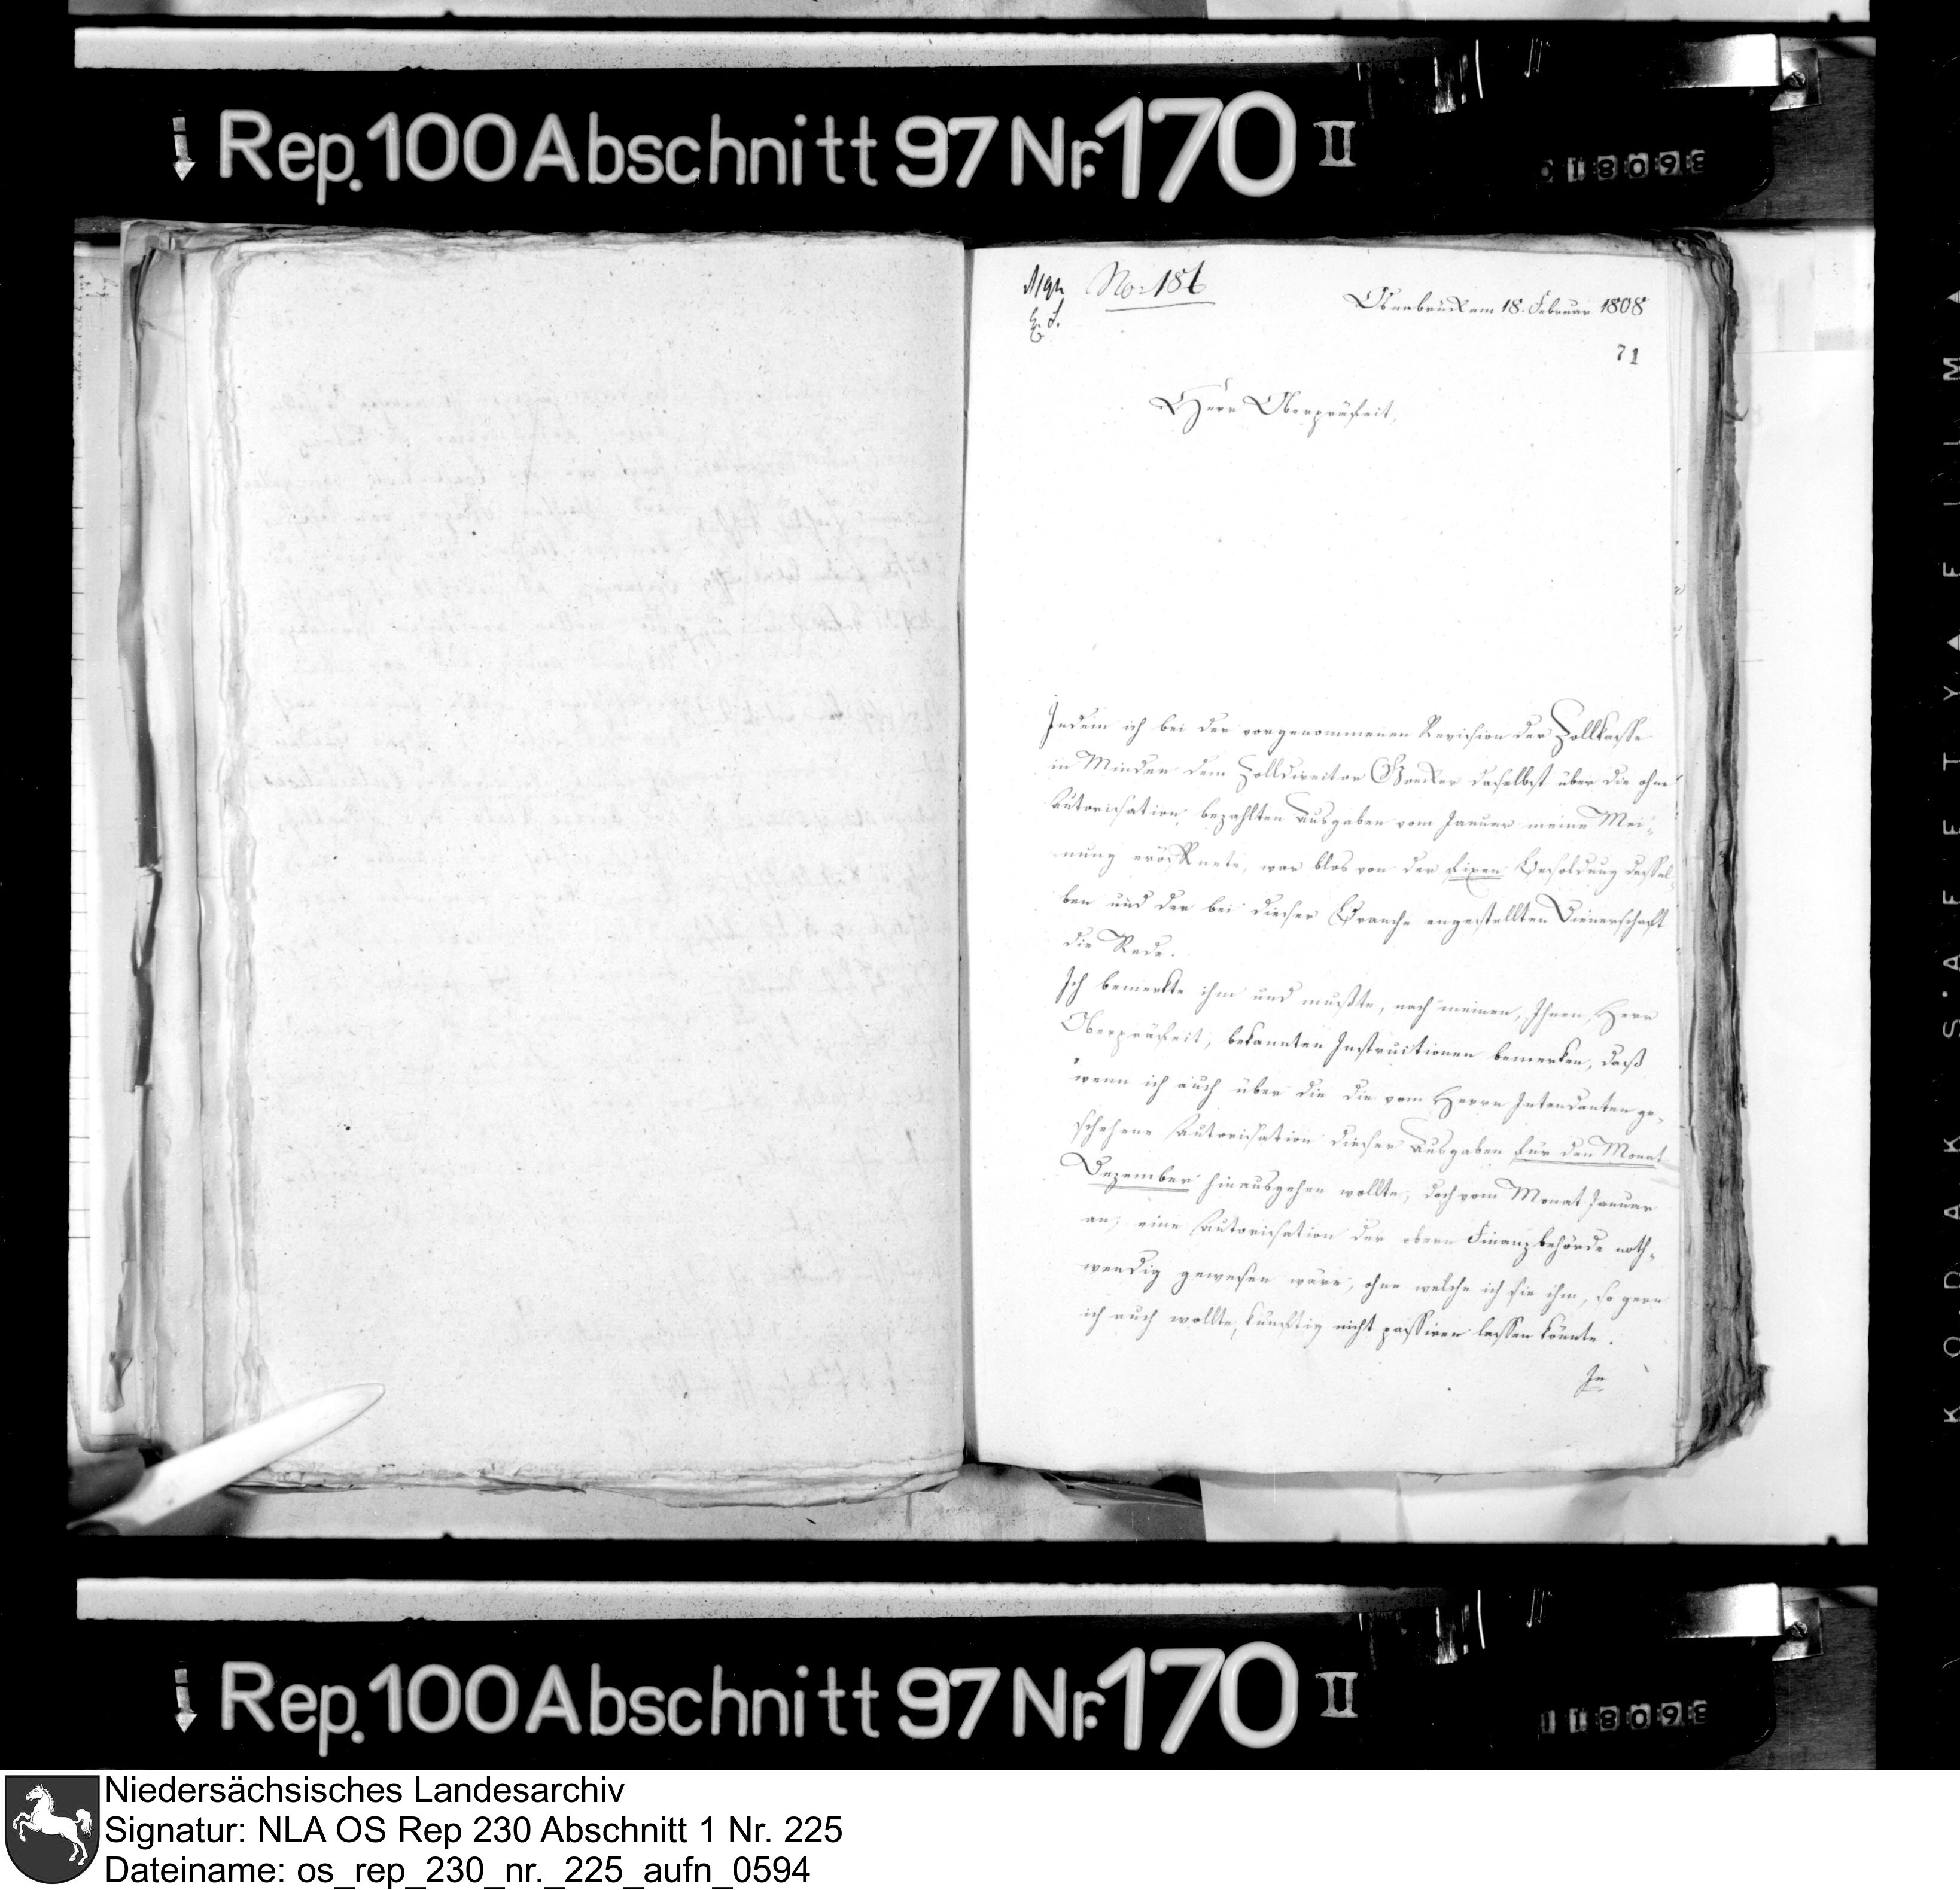 Rep. 100 Abschnitt 97 Nr. 170 II
No: 186
Osnabrück am 18. Februar 1808
71
Herr Oberpräfect,
Indem ich bei der vorgenommenen Revision der Zollkasse
in Minden dem Zolldirector Goecker daselbst über die ohne
Autorisation bezahlten Ausgaben vom Januar meine Mei-
nung eröffnete, war blos von der fixen Besoldung dessel-
ben und der bei dieser Branche angestellten Dienerschaft
die Rede.
Ich bemerkte ihm und mußte, nach meinen, Ihnen, Herr
Oberpräfect, bekannten Instructionen bemerken, daß
wenn ich auch über die die vom Herrn Intendanten ge-
schehene Autorisation dieser Ausgaben für den Monat
Dezember hinausgehen wollte, doch vom Monat Januar
an, eine Autorisation der obern Finanzbehörde noth-
wendig gewesen wäre, ohne welche ich sie ihm, so gern
ich auch wollte, künftig nicht passiren lassen könnte.
In
Rep. 100 Abschnitt 97 Nr. 170 II
KODAK SAFETY FILM
Niedersächsisches Landesarchiv
Signatur: NLA OS Rep 230 Abschnitt 1 Nr. 225
Dateiname: os_rep_230_nr._225_aufn_0594